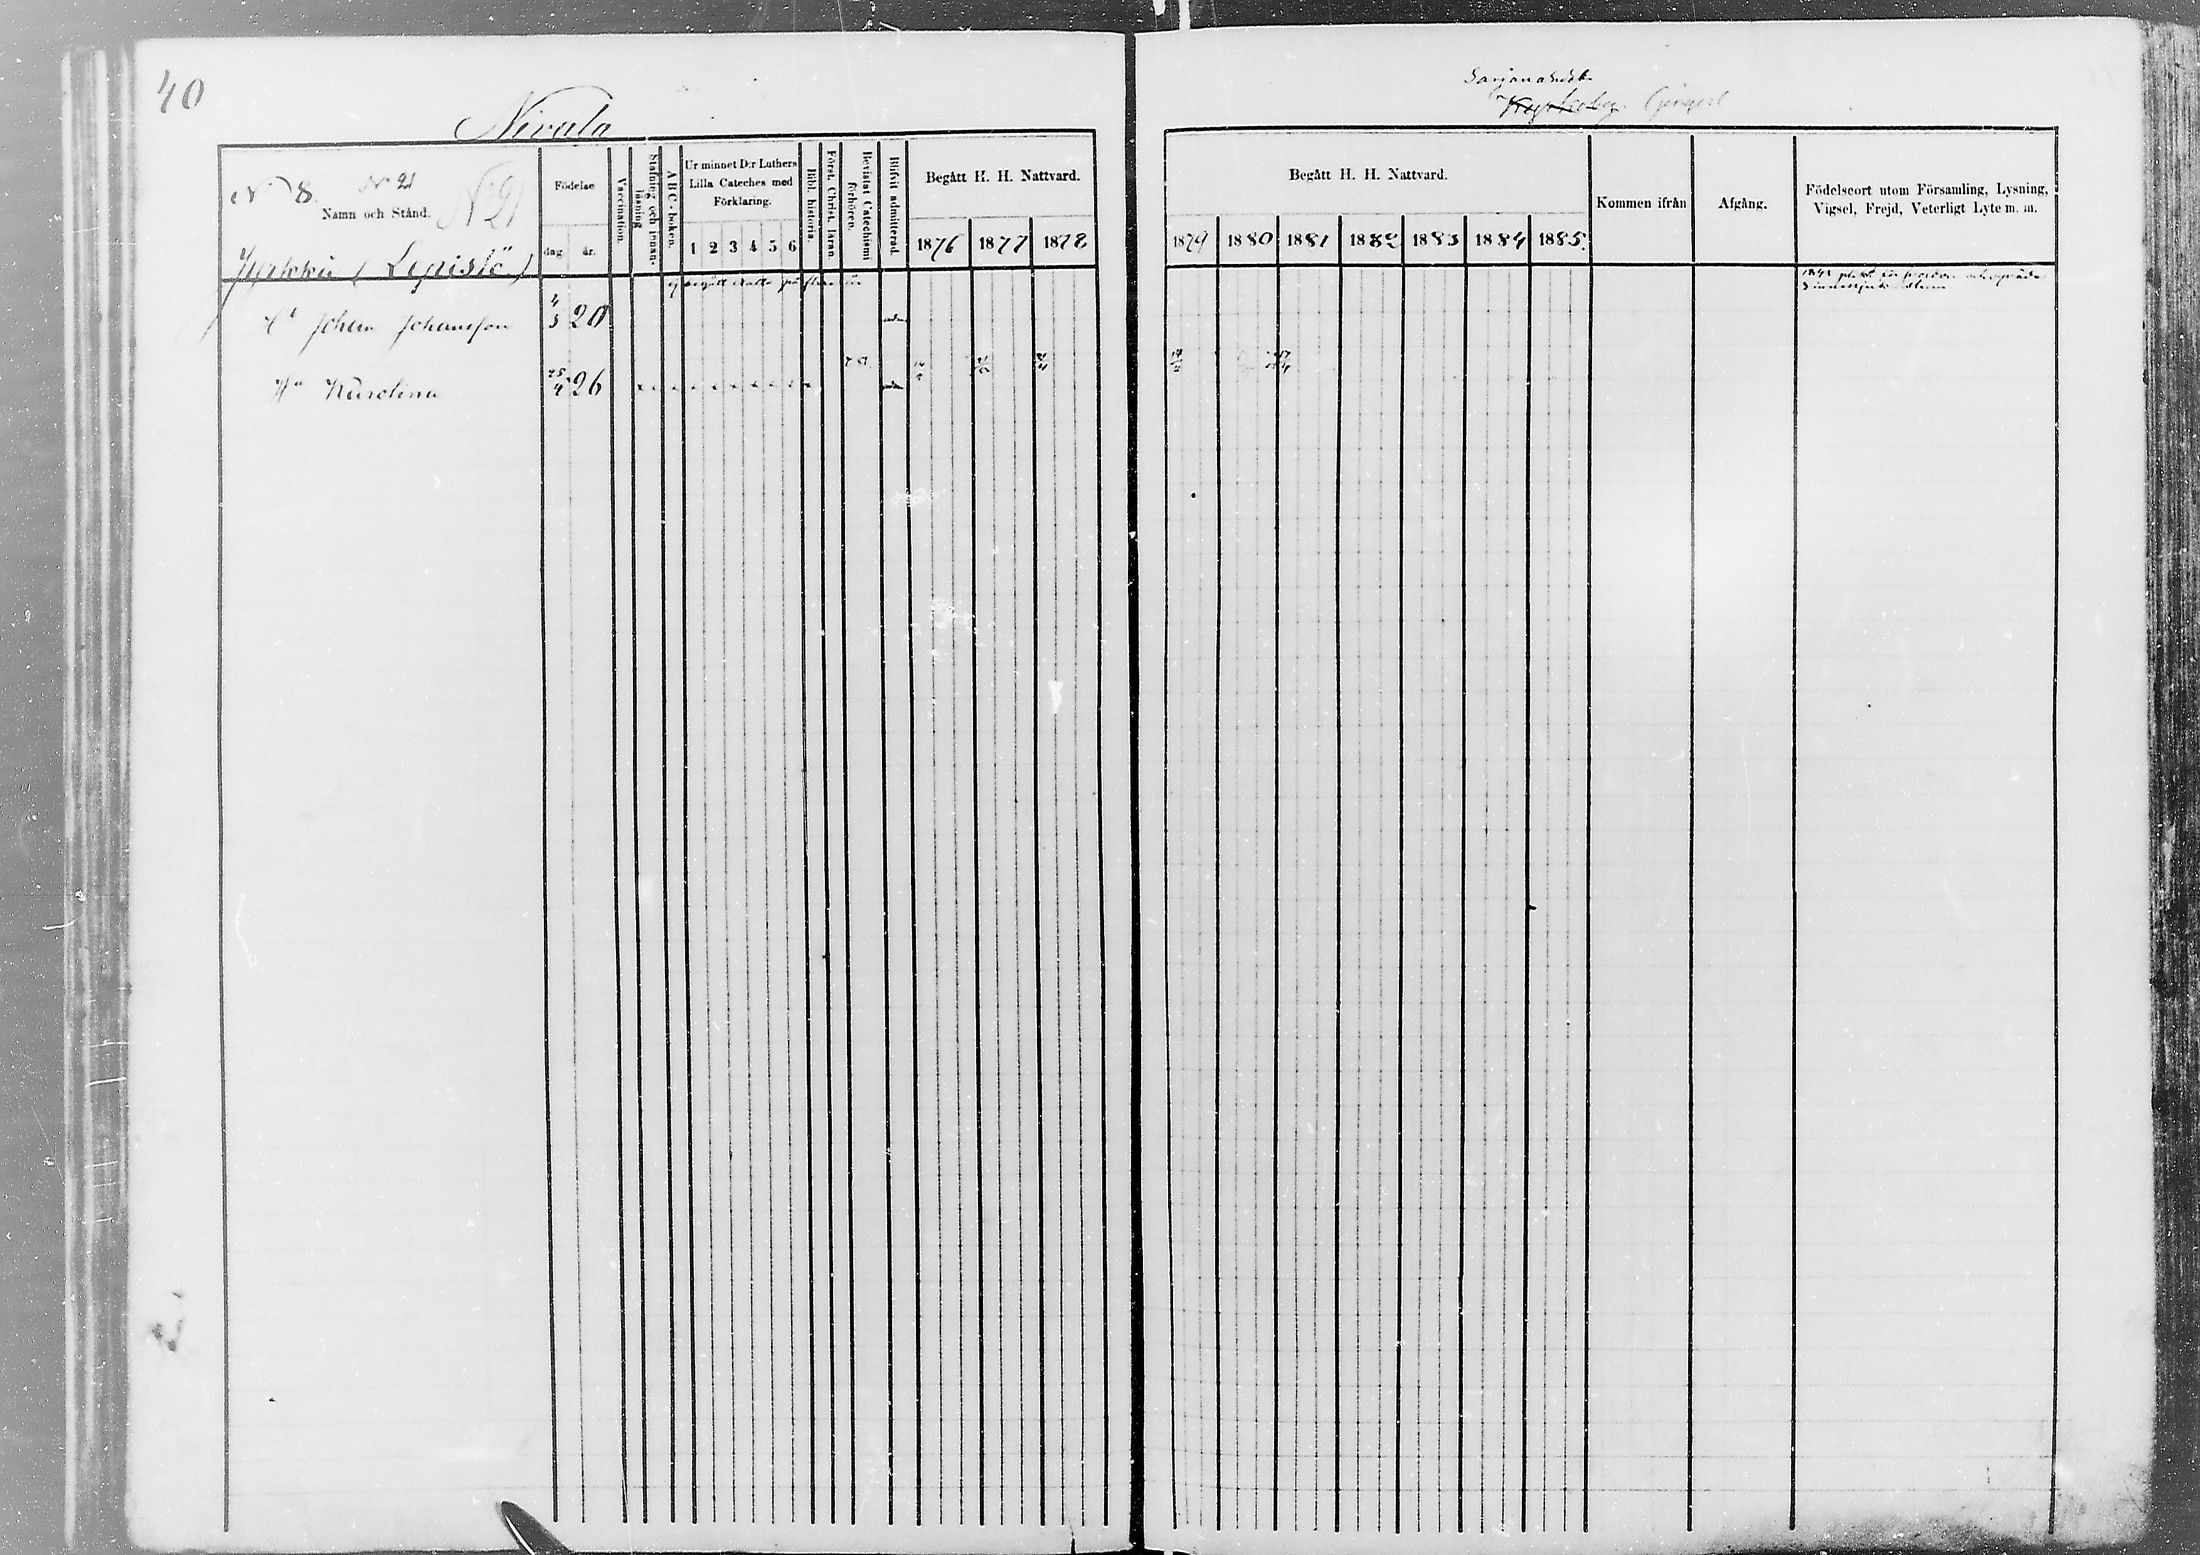 40
Nivala
N 8 N 21
Namn och Stånd. N 21
Födelse
dag år.
Vaccination.
Stafning och innan-
läsning
ABC-boken.
Ur minnet D:r Luthers
Lilla Cateches med
Förklaring.
1 2 3 4 5 6
Bibl. historia.
Först. Christ. läran.
Bevistat Catechismi
förhören.
Blifvit admitterad.
Begått H. H. Nattvard.
1876 1877 1878
(Lepistö)
ej begått på flere år
Johan Johansson 4/3 20
Karolina 25/4 26
Begått H. H. Nattvard.
1879 1880 1881 1882 1883 1884 1885.
Kommen ifrån
Afgång.
Födelseort utom Församling, Lysning,
Vigsel, Frejd, Veterligt Lyte m. m.